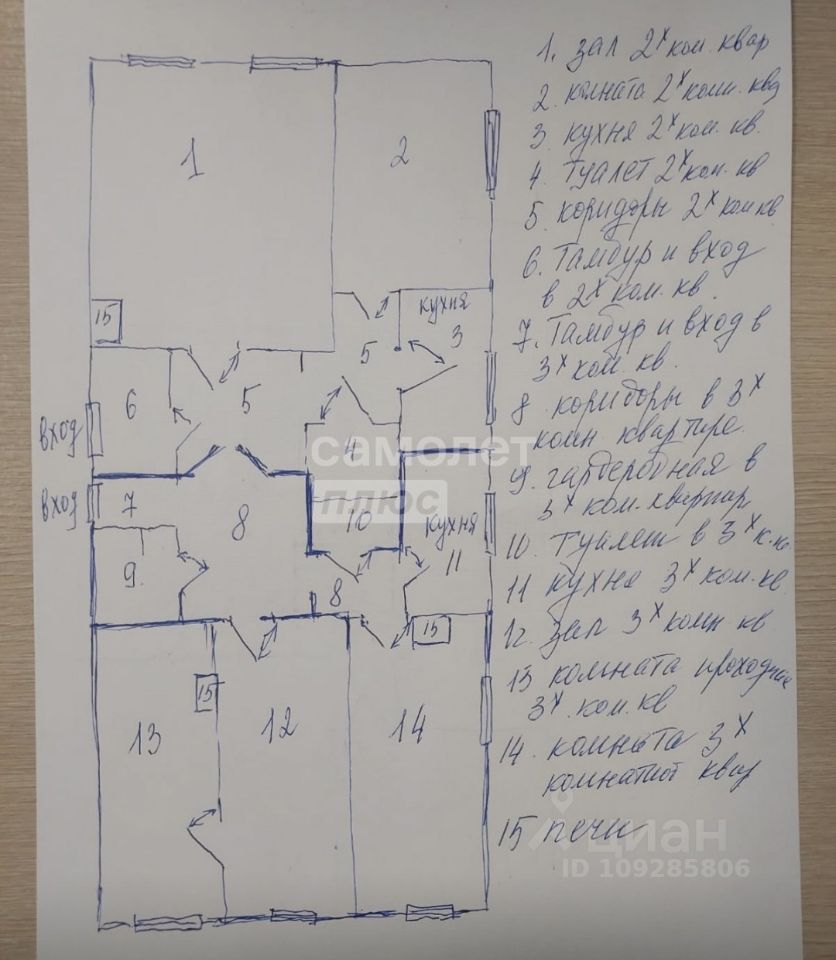 1. зал 2х ком. квар
2. комната 2х комн. кв
3 кухня 2х ком. кв.
4. Туалет 2х ком. кв
5 коридоры 2х ком кв
6. Тамбур и вход
в 2х ком. кв.
7. Тамбур и вход в
3х ком. кв.
8 коридоры в 3х
комн. квартире.
9. гардеробная в
3х ком. квартир
10. Туалет в 3х к.кв
11 кухня 3х ком. кв
12. Зал 3х комн кв
13 комната проходная
3х. ком. кв
14. комната 3х
комнатной квар
15 печи
1
2
15
кухня
3
5
6
5
вход
4
самолет
плюс
вход
7
8
10
кухня
11
9
8
15
15
13
12
14
циан
ID 109285806